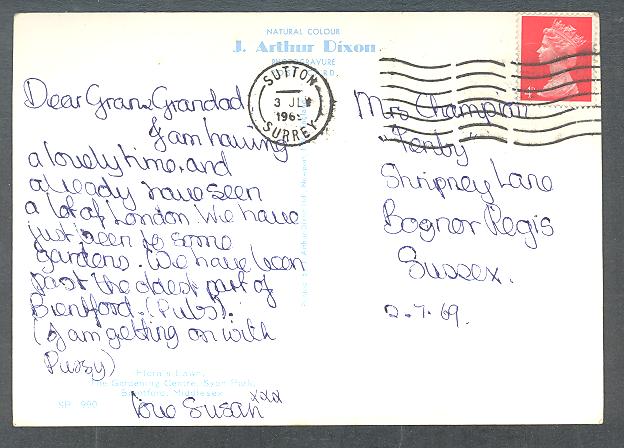 NATURAL COLOUR
J. Arthur Dixon
PHOTOGRAVURE
SUTTON
3 JLY
1969
SURREY
4D
Dear Gran & Grandad,
I am having
a lovely time, and
already have seen
a lot of London. We have
just been to some
gardens. We have been
past the oldest part of
Brentford. (Pubs).
(I am getting on with
Pussy)
love Susan xxx
Mrs Champion
"Tenby"
Shripney Lane
Bognor Regis
Sussex.
2.7.69.
Flora's Lawn,
The Gardening Centre, Syon Park,
Brentford, Middlesex